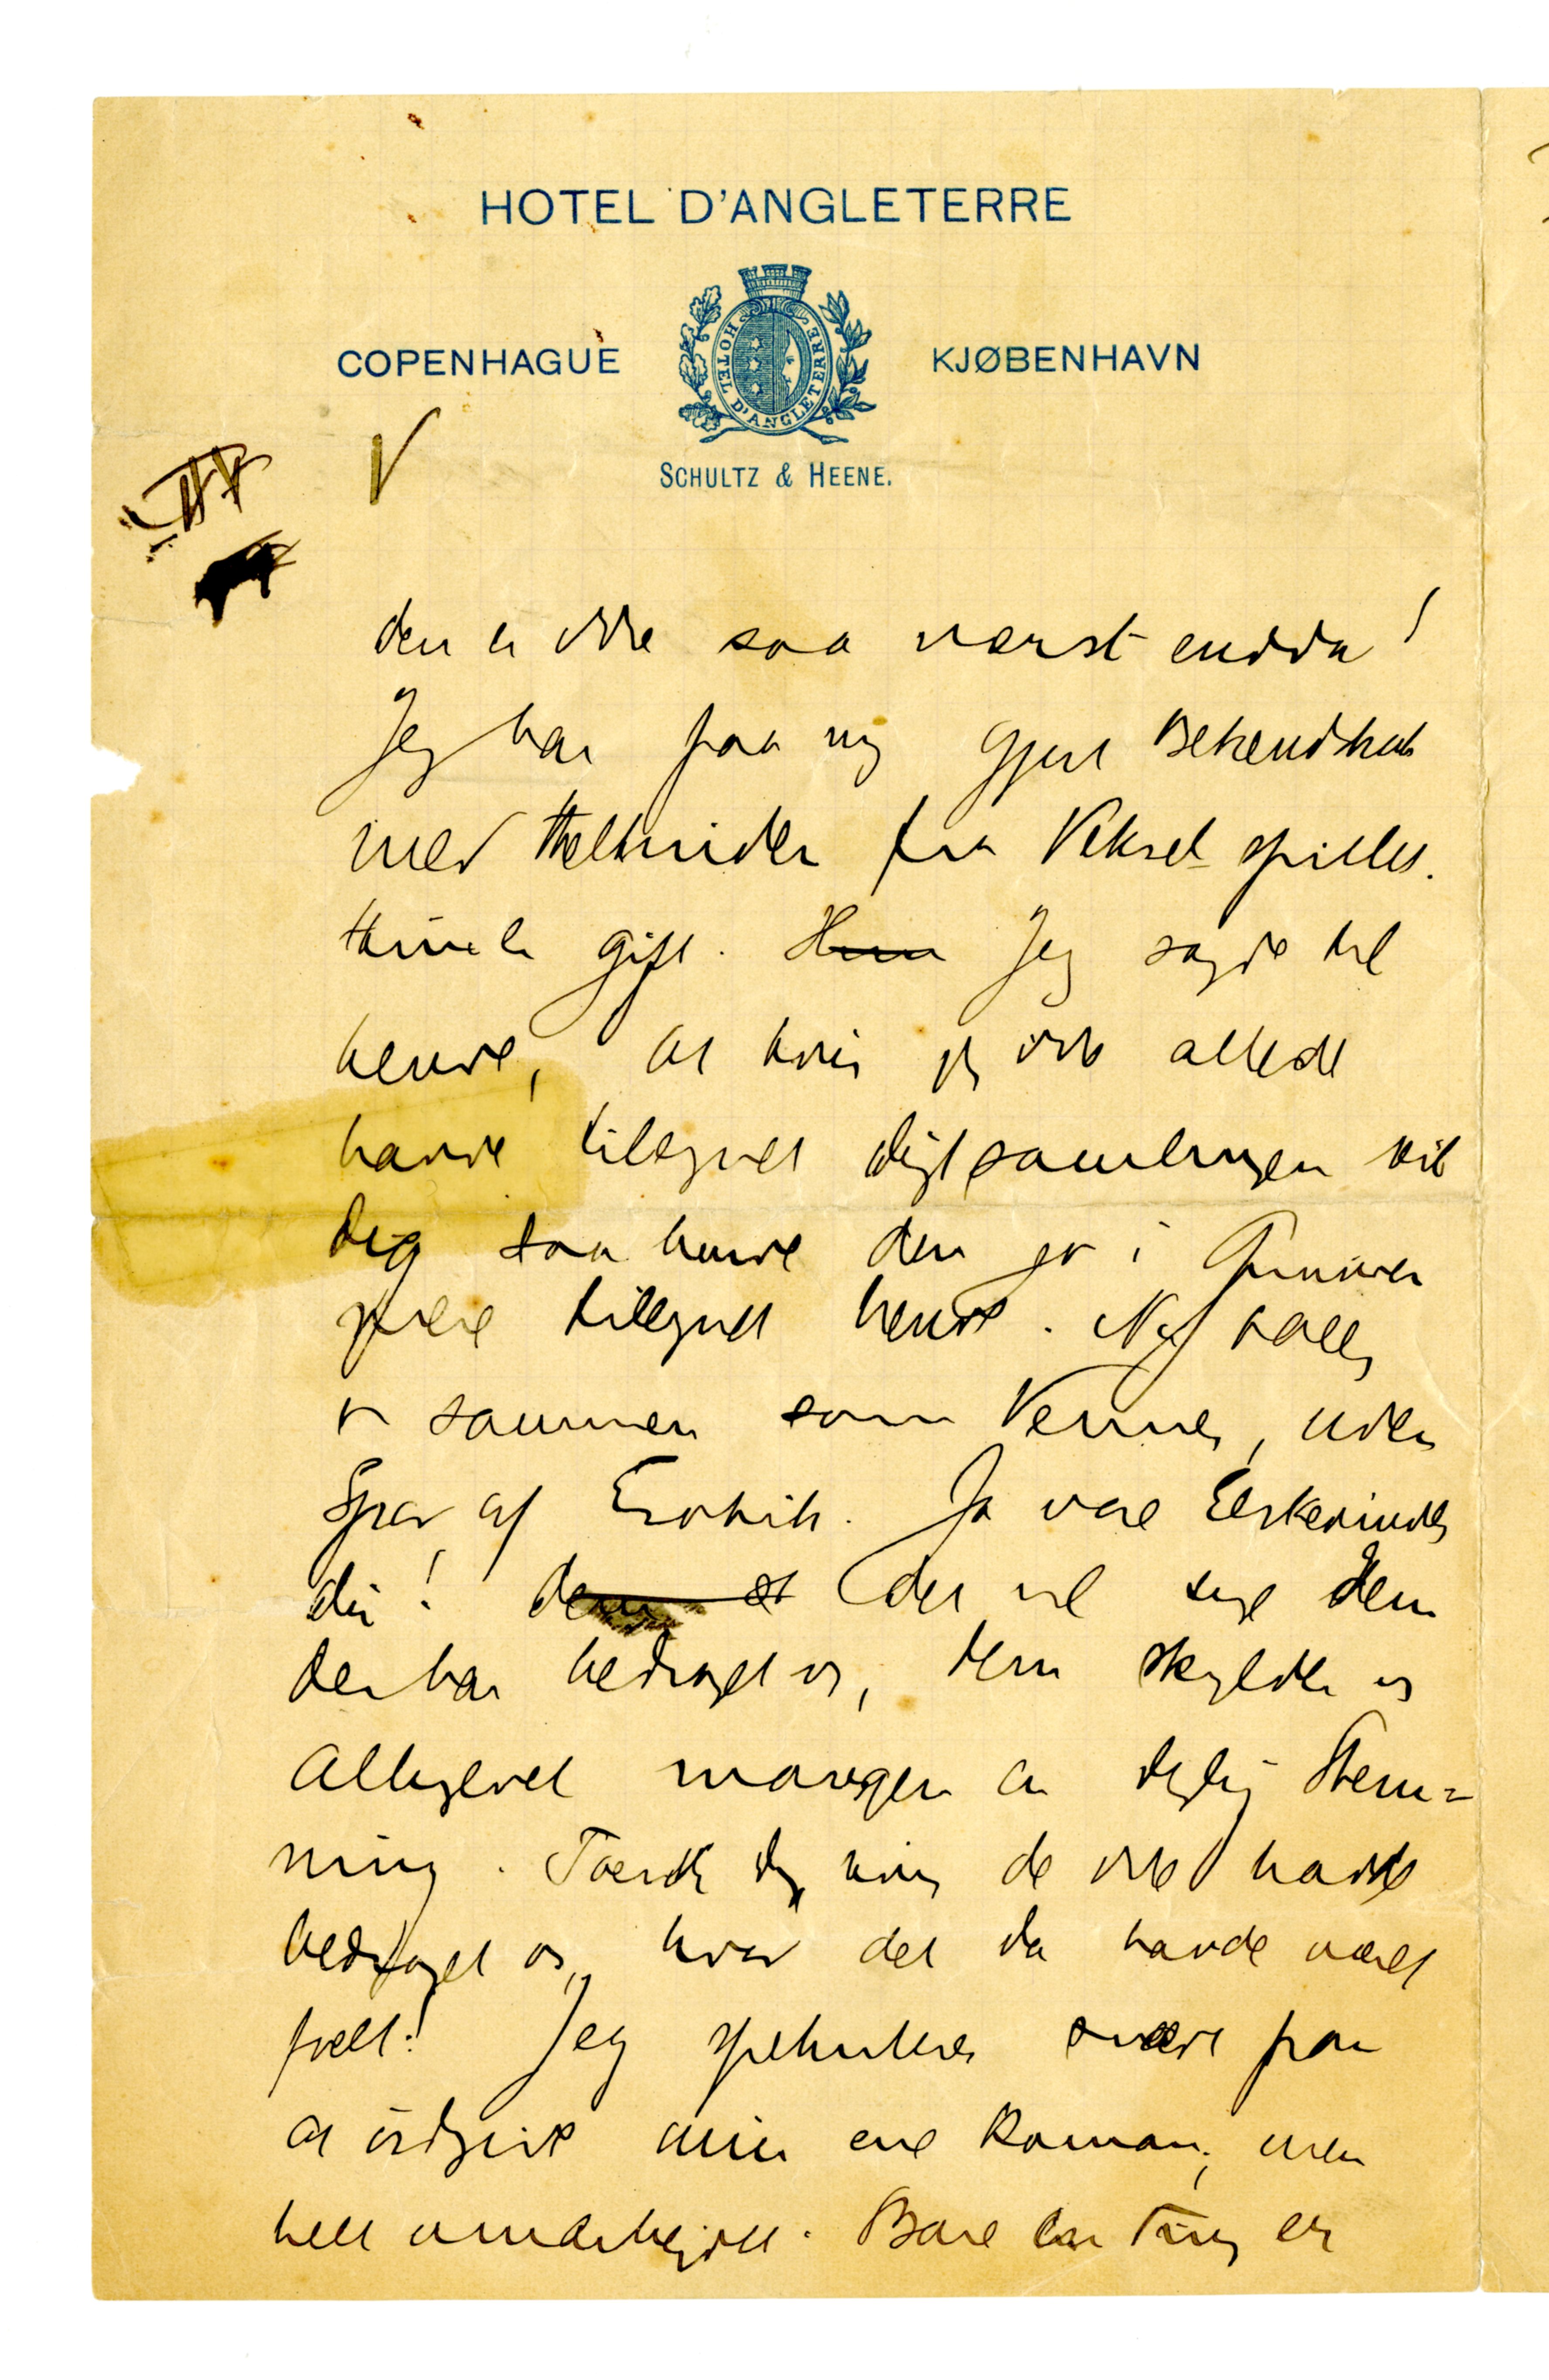 HOTEL D'ANGLETERRE
COPENHAGUE KJØBENHAVN
HOTEL D'ANGLETERRE
SCHULTZ & HEENE.
V
den er ikke saa værst endda!
Jeg har paa ny gjort Bekendskab
med Heltinden fra Veksel-spillet.
Hun er gift. Hun Jeg sagde til
hende, at hvis jeg ikke allerede
havde tilegnet Digtsamlingen til
Dig saa burde den jo i
være tilegnet hende. Nu
vi sammen som Venner, uden
Spor af Erotik. Ja vore Elskerinder
du! dem der vil sige dem
der har bedraget os, dem skylder vi
alligevel mangen en dejlig Stem=
ning. Tænk dig hvis de ikke havde
bedraget os, hvor det da havde været
fælt! Jeg spekulerer svært paa
at udgive min ene Roman, men
helt omarbejdet. Bare en Ting er